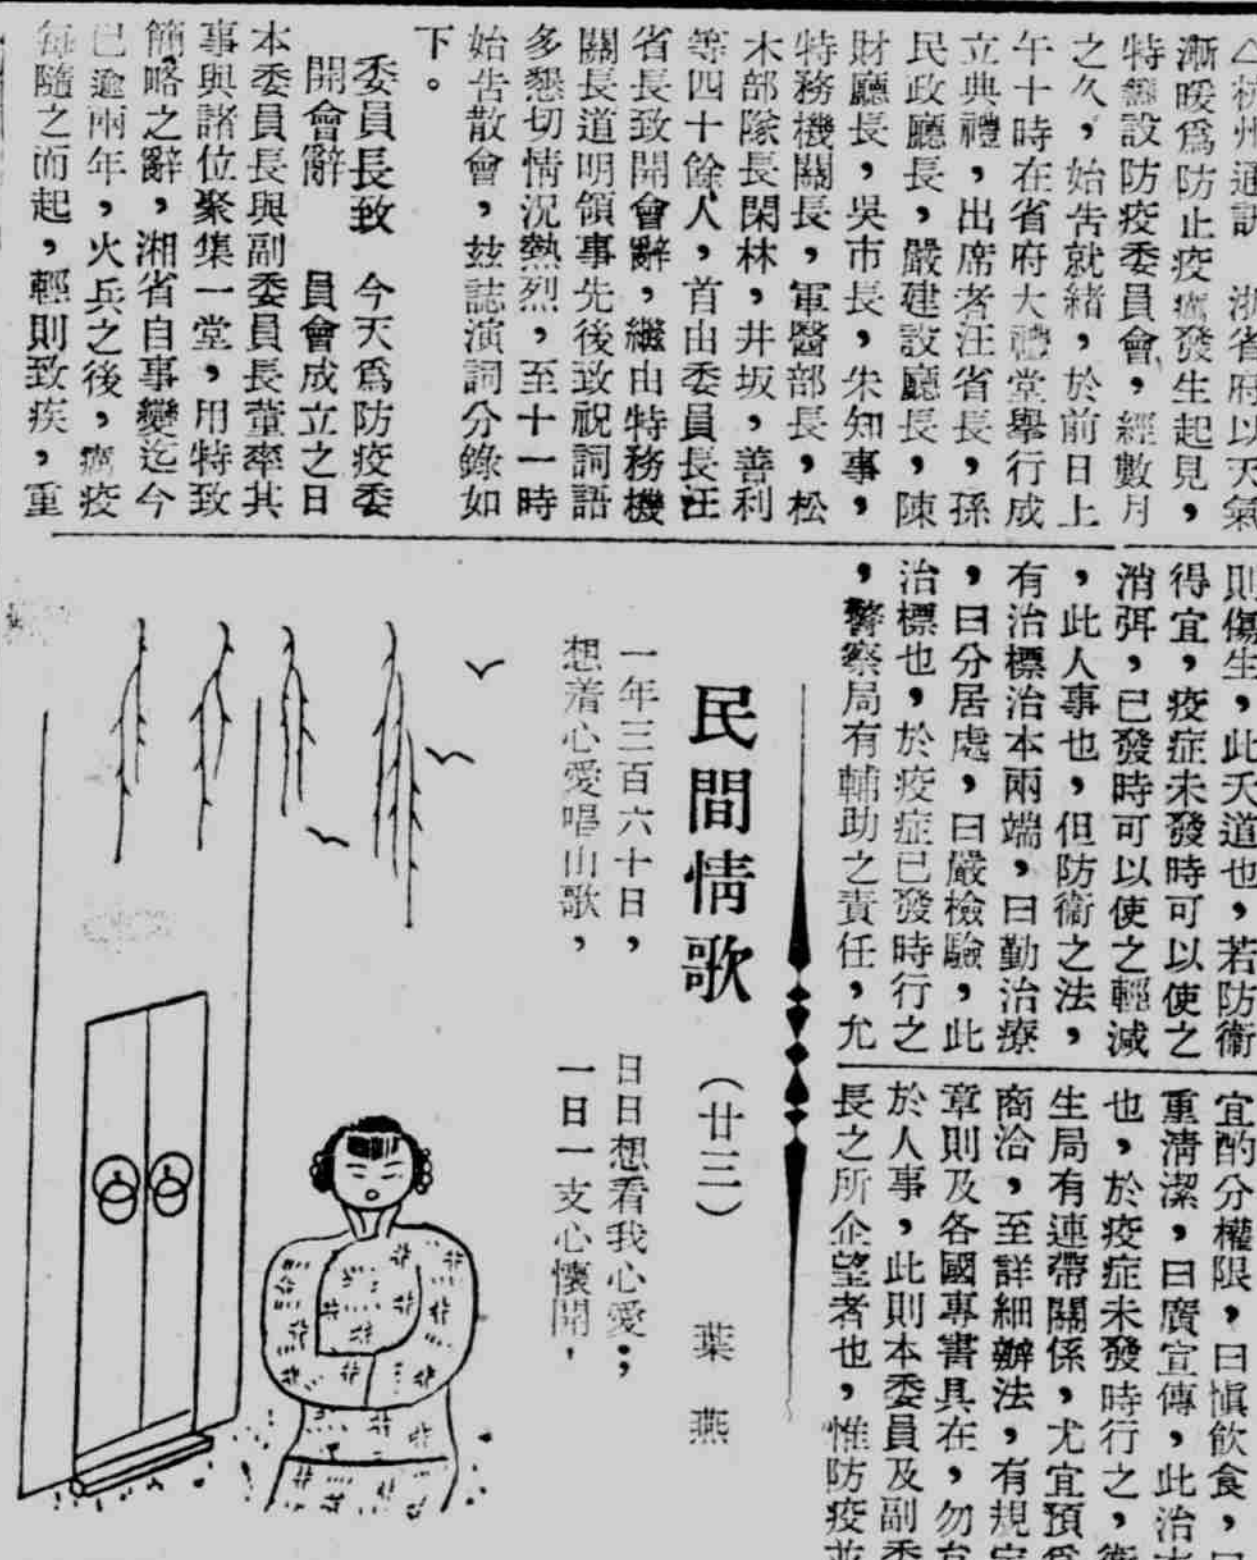 杭州通訊　浙省府以天氣
漸暖爲防止疫癘發生起見，
特組設防疫委員會，經數月
之久，始告就緒，於前日上
午十時在省府大禮堂舉行成
立典禮，出席者汪省長，孫
民政廳長，嚴建設廳長，陳
財廳長，吳市長，朱知事，
特務機關長，軍醫部長，松
木部隊長閑林，井坂，善利
等四十餘人，首由委員長汪
省長致開會辭，繼由特務機
關長道明領事先後致祝詞語
多懇切情況熱烈，至十一時
始告散會，玆誌演詞分錄如
下。
委員長致　今天爲防疫委
開會辭　員會成立之日
本委員長與副委員長董率其
事與諸位聚集一堂，用特致
簡略之辭，湘省自事變迄今
已逾兩年，火兵之後，癘疫
每隨之而起，輕則致疾，重
則傷生，此天道也，若防衞
得宜，疫症未發時可以使之
消弭，已發時可以使之輕減
，此人事也，但防衞之法，
有治標治本兩端，曰勤治療
，曰分居處，曰嚴檢驗，此
治標也，於疫症已發時行之
，警察局有輔助之責任，尤
宜酌分權限，曰愼飲食，曰
重清潔，曰廣宣傳，此治
也，於疫症未發時行之，衞
生局有連帶關係，尤宜預爲
商洽，至詳細辦法，有規定
章則及各國專書具在，勿
於人事，此則本委員及副委
長之所企望者也，惟防疫並
民間情歌　（廿三）　葉燕
一年三百六十日，　日日想看我心愛；
想着心愛唱山歌，　一日一支心懷開，